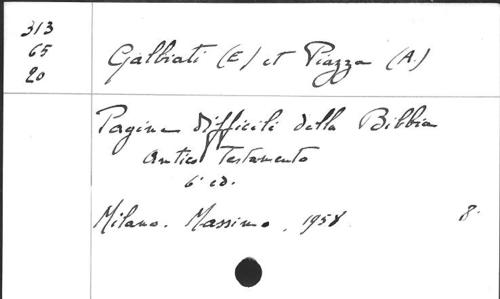 313
65
20
Galbiati (E) et Piazza (A.)
Pagine difficili della Bibbia
Antico Testamento
6ª ed.
Milano. Massimo, 1958 8.